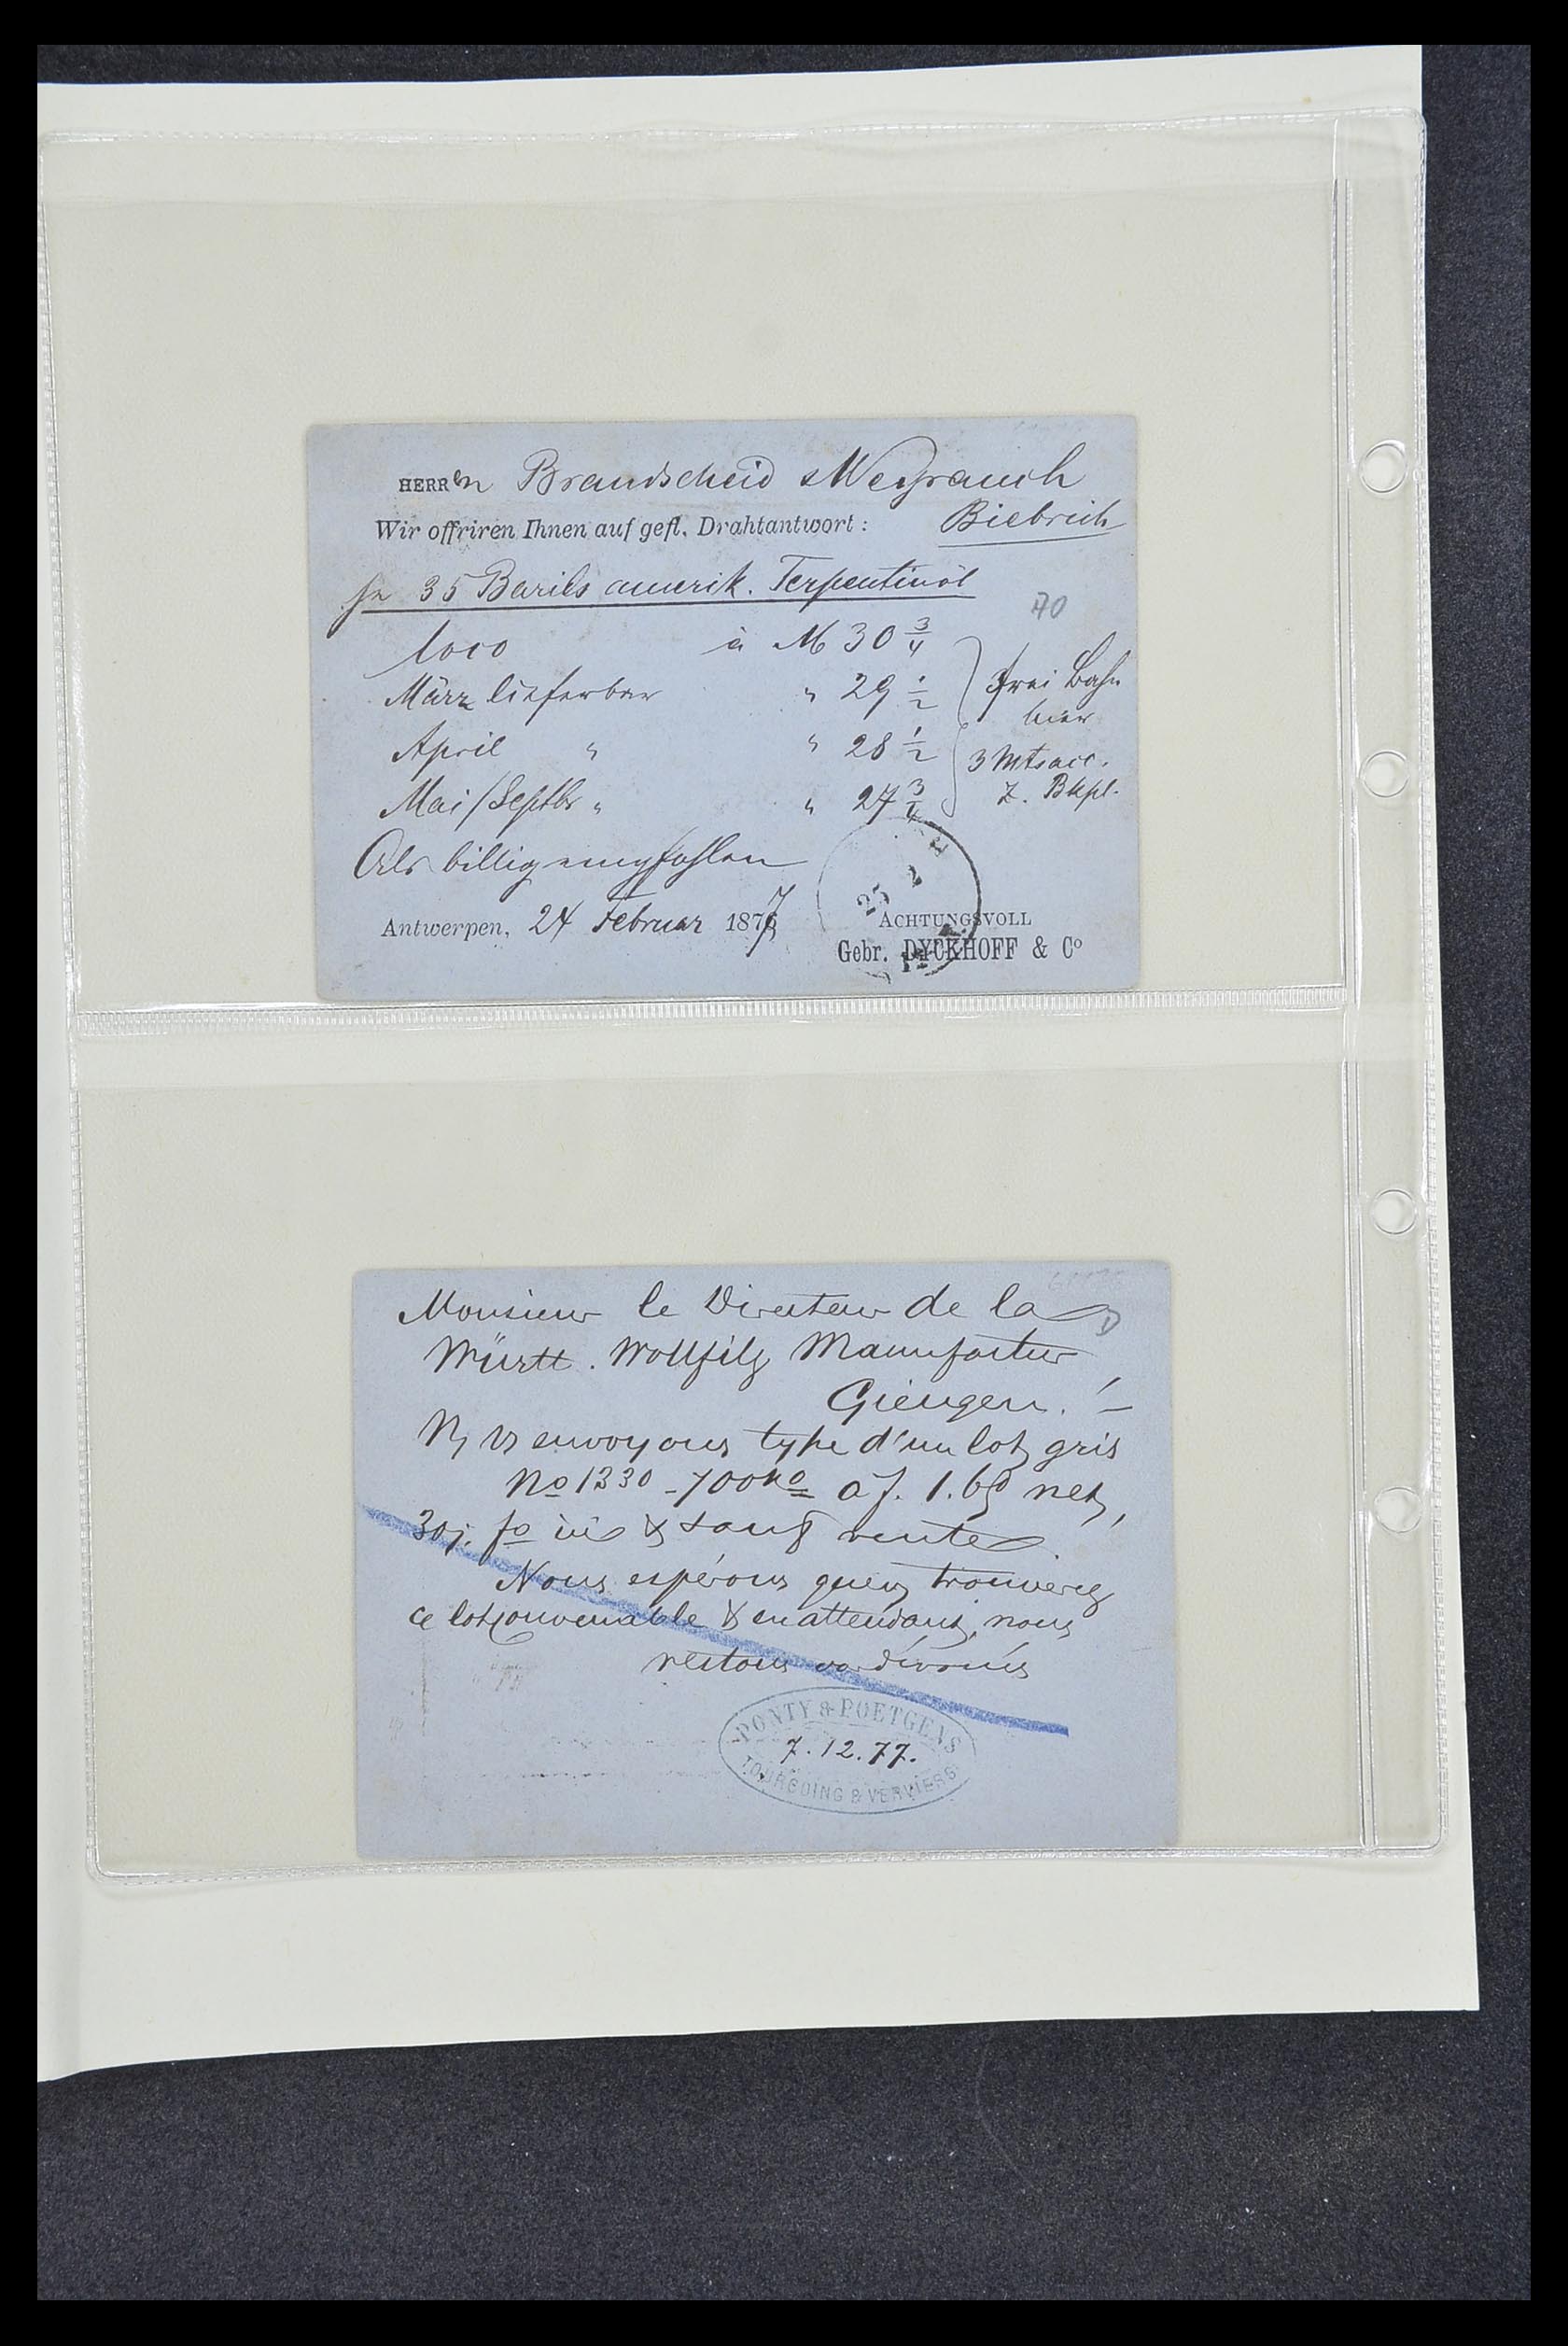 HERRen Brandscheid & Weyrauch
Wir offriren Ihnen auf gefl. Drahtantwort: Biebrich
35 Barils amerik. Terpentinöl
70
loco à M 30 3/4
März lieferbar " 29 1/2 frei Bahn
hier
April " " 28 1/2 3 Mts acc.
Mai/Septbr " " 27 3/4 z. Bkpl.
Als billig empfohlen
25 2
Antwerpen, 24 Februar 1877
ACHTUNGSVOLL
Gebr. DYCKHOFF & Co
Monsieur le Directeur de la
Württ. Wollfilz Manufactur
Giengen. !
envoyons type d'un lot gris
No 1330 - 700 ko a f. 1.60 net,
30 j. fo & sauf vente.
Nous espérons que trouverez
ce lot convenable & en attendant, nous
restons dévoués
PONTY & POETGENS
7.12.77.
TOURCOING & VERVIERS